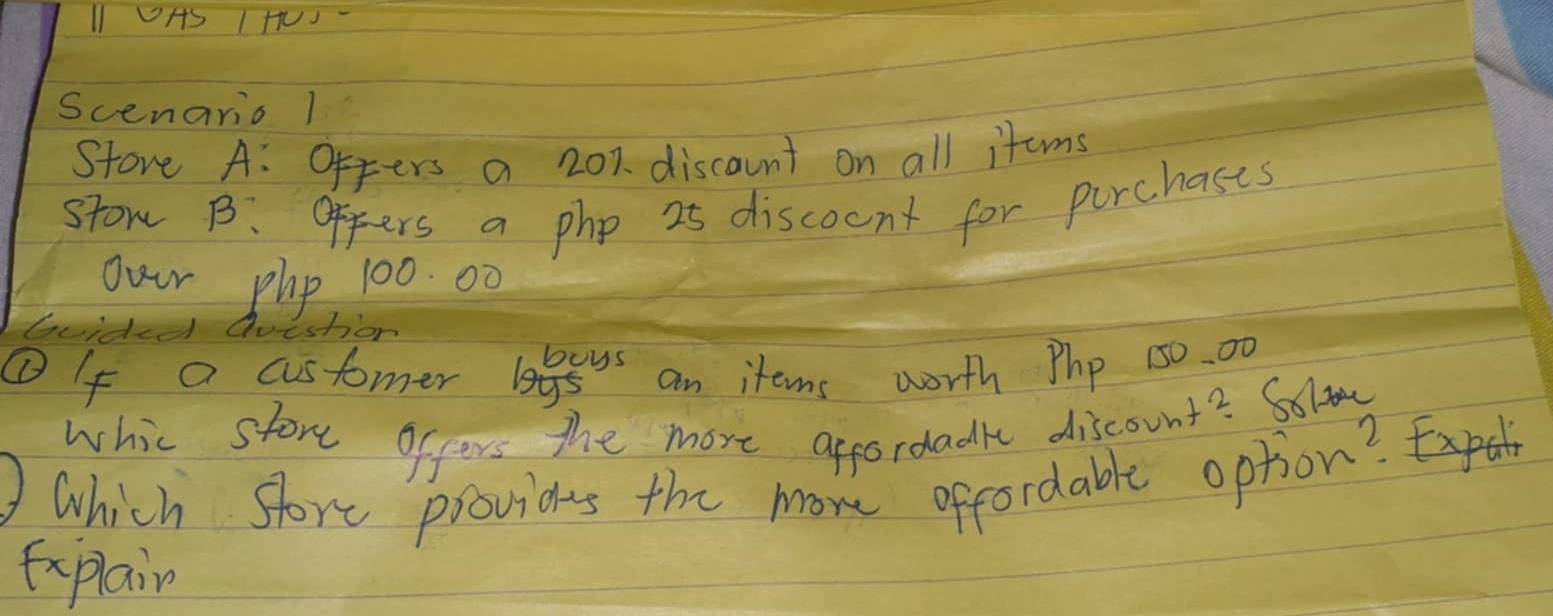 Scenario 1
Store A: Offers a 20% discount on all items
Store B: Offers a php 25 discocnt for purchases
Over php 100.00
Guided Question
① If a customer buys an items worth Php 150.00
whic store offers the more affordadle discount? Solve
) Which store provides the more affordable option?
Explain